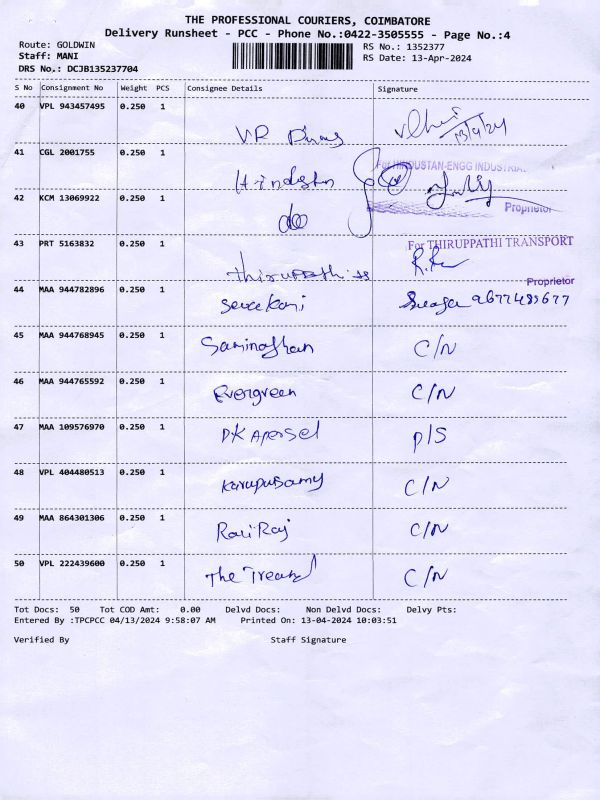 THE PROFESSIONAL COURIERS, COIMBATORE
Delivery Runsheet - PCC - Phone No.:0422-3505555 - Page No.:4
Route: GOLDWIN RS No.: 1352377
Staff: MANI RS Date: 13-Apr-2024
DRS No.: DCJB135237704
S No Consignment No Weight PCS Consignee Details Signature
40 VPL 943457495 0.250 1
VR 13/4/24
41 CGL 2001755 0.250 1
For HINDUSTAN-ENGG INDUSTRIAL
42 KCM 13069922 0.250 1
do Proprietor
43 PRT 5163832 0.250 1
For THIRUPPATHI TRANSPORT
Proprietor
44 MAA 944782896 0.250 1
45 MAA 944768945 0.250 1
Saminathan C/N
46 MAA 944765592 0.250 1
Evergreen C/N
47 MAA 109576970 0.250 1
P/S
48 VPL 404480513 0.250 1
Karupusamy C/N
49 MAA 864301306 0.250 1
Raviraj C/N
50 VPL 222439600 0.250 1
The C/N
Tot Docs: 50 Tot COD Amt: 0.00 Delvd Docs: Non Delvd Docs: Delvy Pts:
Entered By :TPCPCC 04/13/2024 9:58:07 AM Printed On: 13-04-2024 10:03:51
Verified By Staff Signature